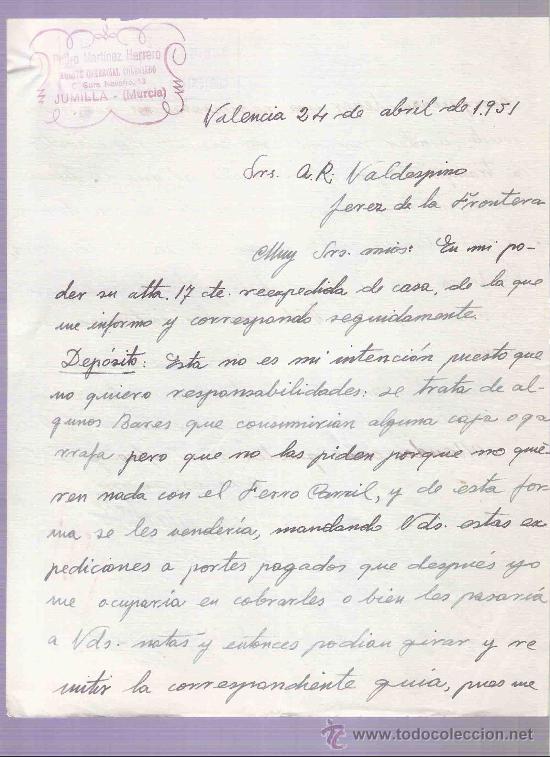 Pedro Martínez Herrero
AGENTE COMERCIAL COLEGIADO
C. Cura Navarro, 13
JUMILLA - (Murcia)
Valencia 24 de abril de 1.951
Srs. A.R. Valdespino
Jerez de la Frontera
Muy Srs. mios: En mi po-
der su atta. 17 cte. reexpedida de casa, de la que
me informo y correspondo seguidamente.
Depósito: Esta no es mi intención puesto que
no quiero responsabilidades: se trata de al-
gunos Bares que consumirian alguna caja o ga
rrafa pero que no las piden porque no quie-
ren nada con el Ferro Carril, y de esta for-
ma se les vendería, mandando Vds. estas ex
pediciones a portes pagados que después yo
me ocuparía en cobrarles o bien les pasaría
a Vds. notas y entonces podian girar y re
mitir la correspondiente guía, pues me
todocoleccion.net